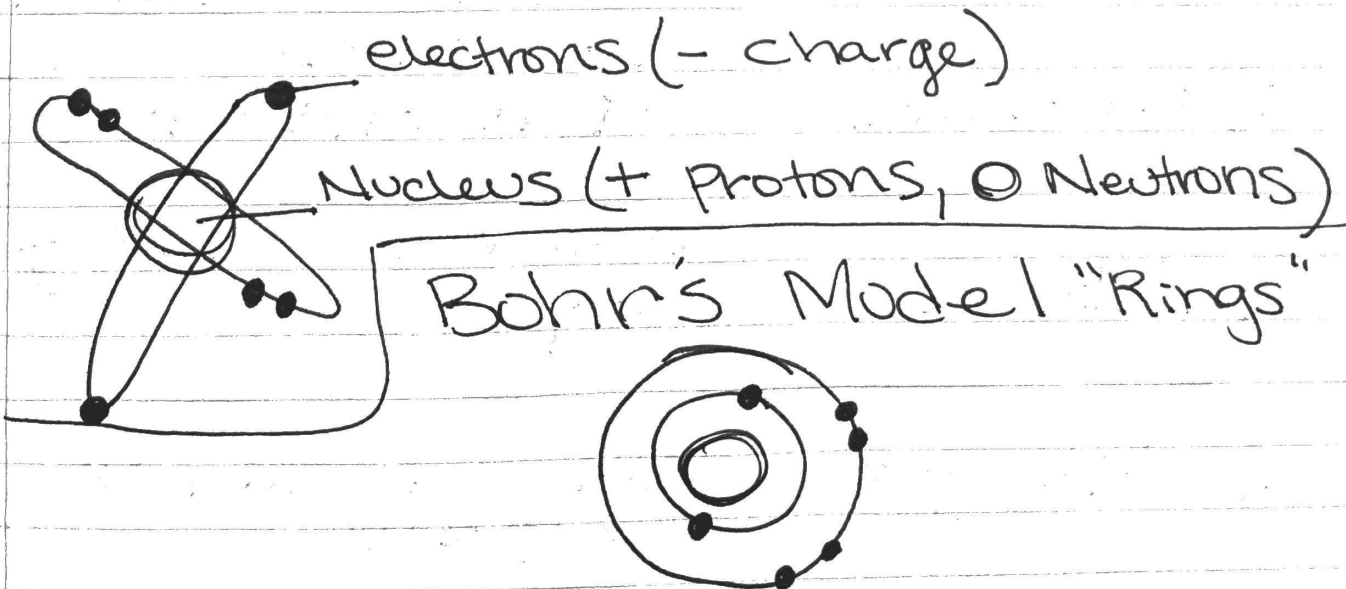 electrons (- charge)
Nucleus (+ Protons, O Neutrons)
Bohr's Model "Rings"